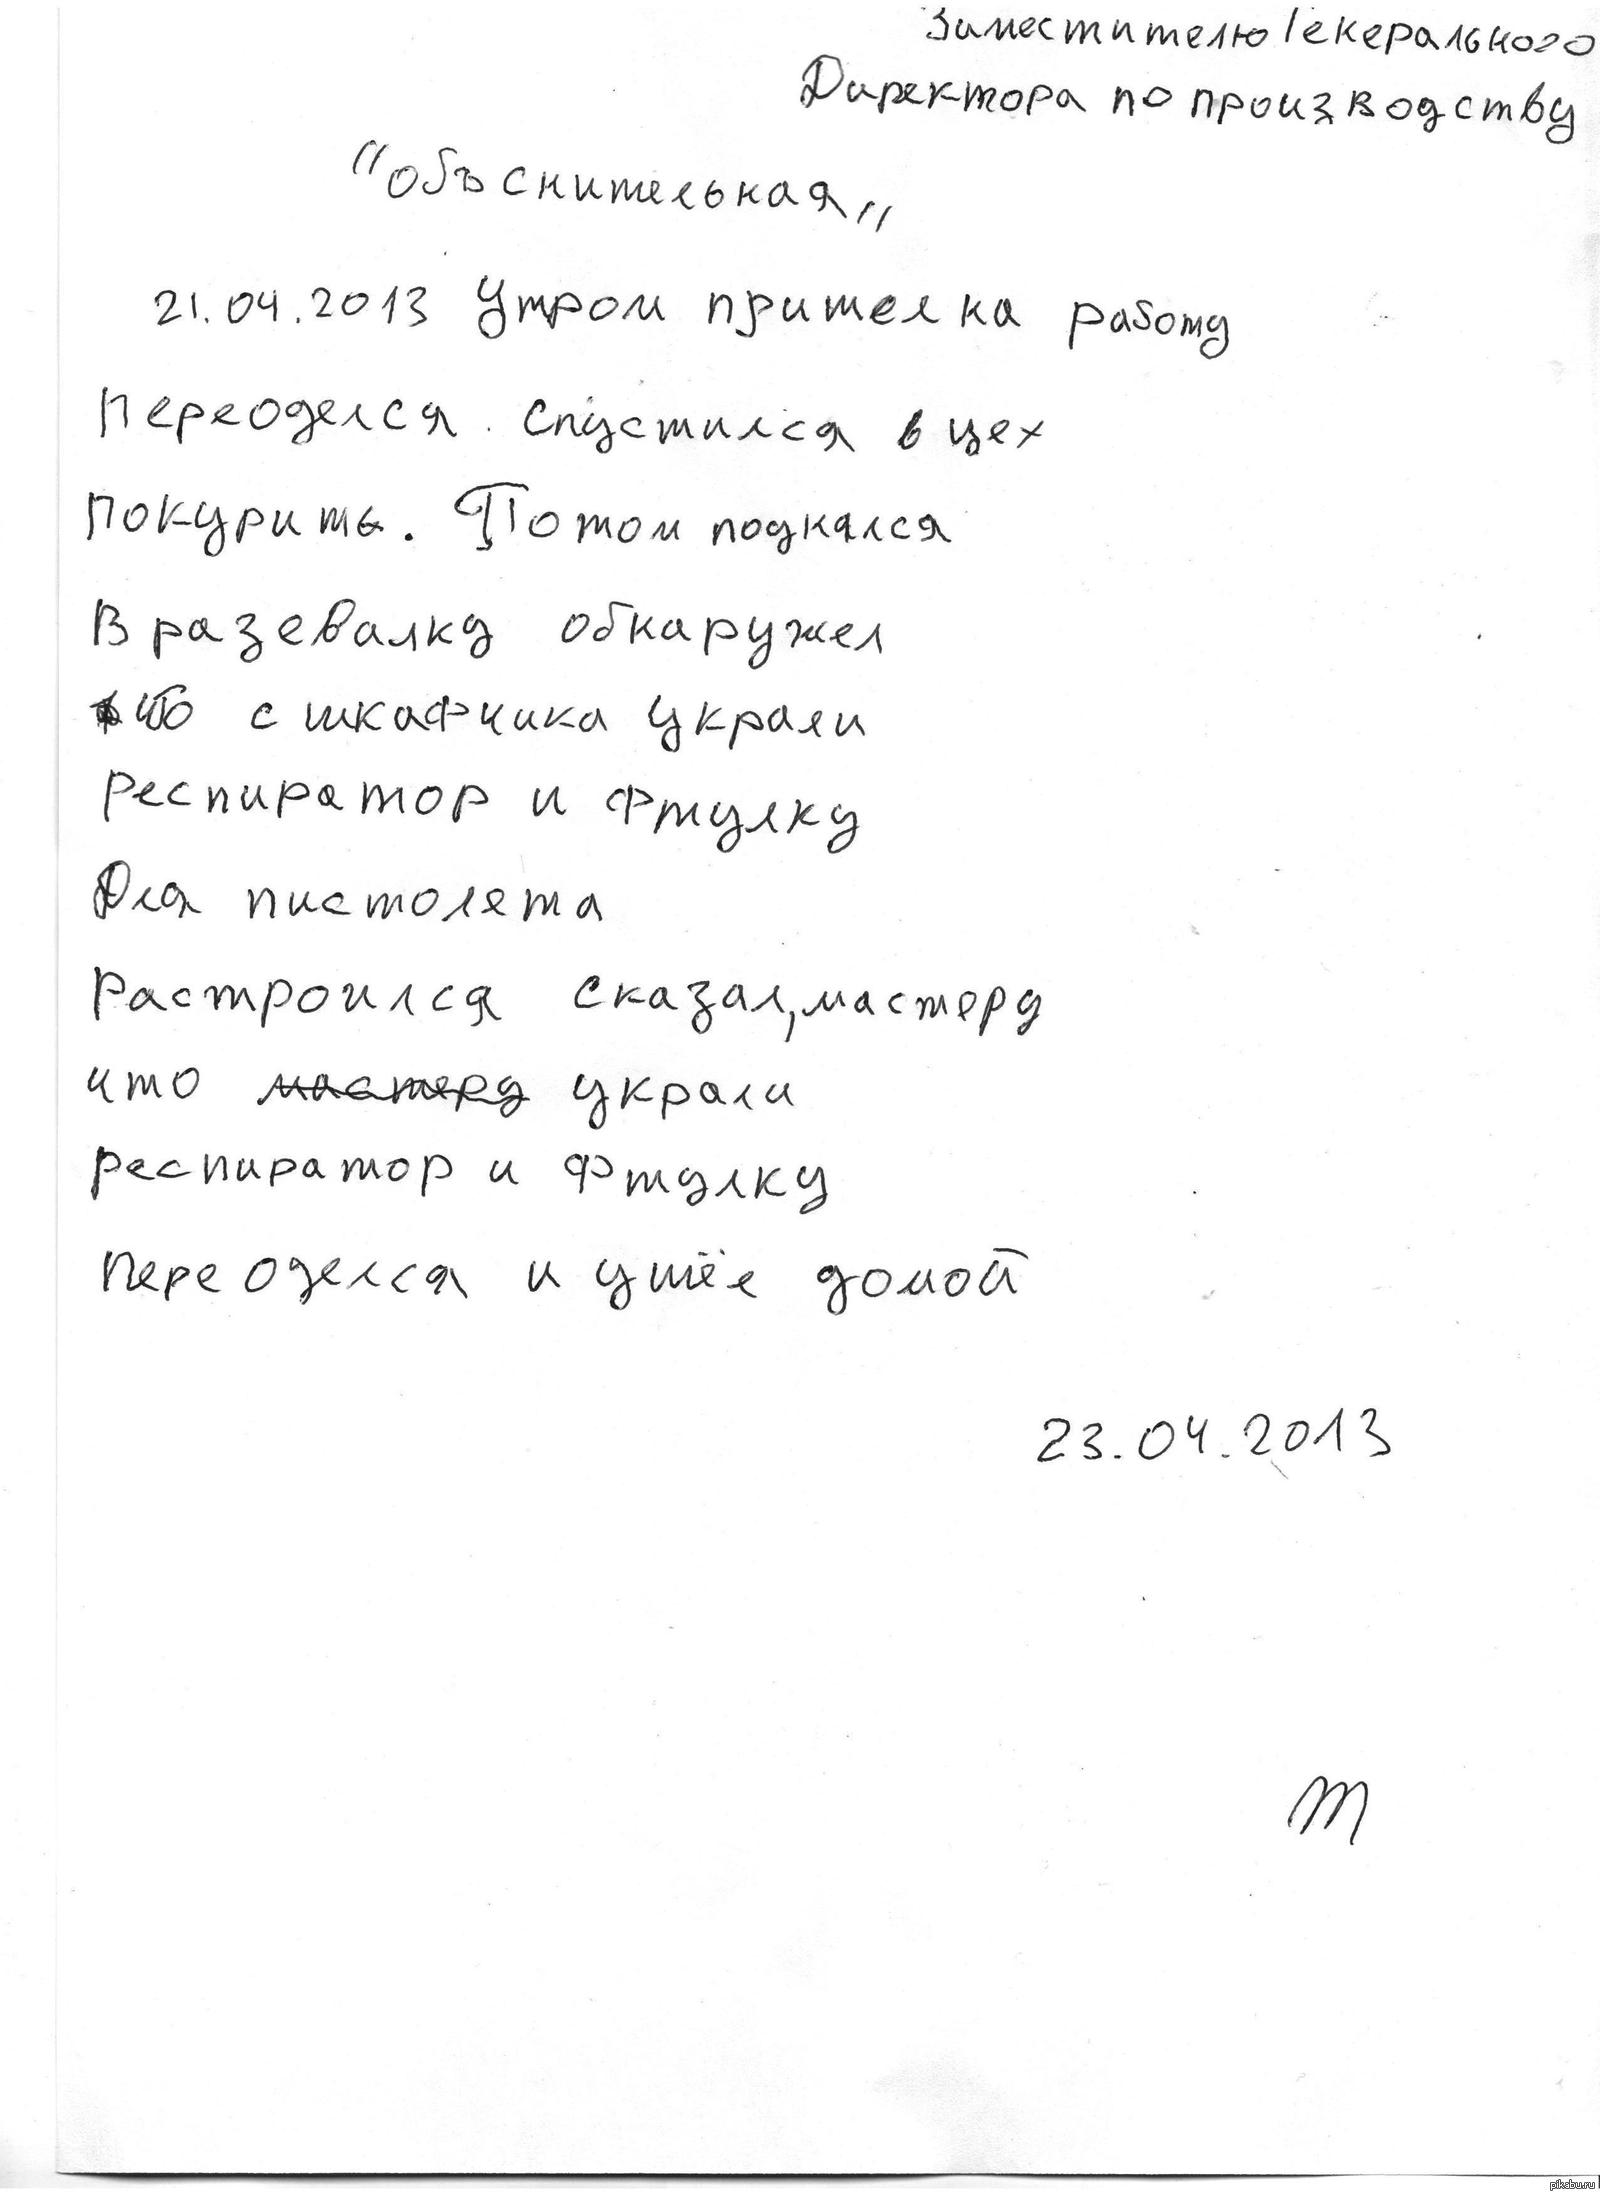 Заместителю Генерального
Директора по производству
"объснительная„
21.04.2013 Утром пришел на работу
Переоделся. Спустился в цех
Покурить. Потом поднялся
В разевалку обнаружел
что с шкафчика украли
Респиратор и Фтулку
Для пистолята
Растроился сказал,мастеру
что мастеру украли
респиратор и Фтулку
Переоделся и ушёл домой
23.04.2013
pikabu.ru